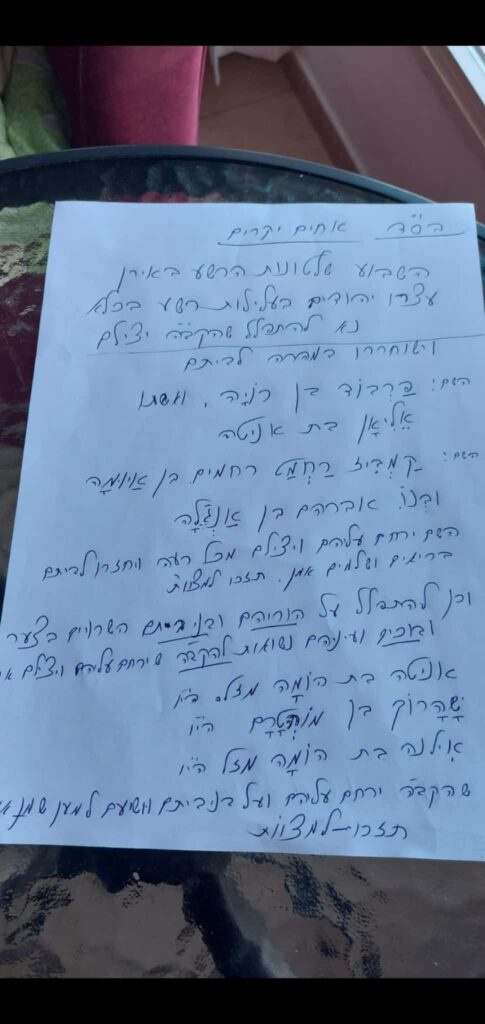 בס"ד אחים יקרים
השבוע שלטונות הרשע באירן
עצרו יהודים בעלילות רשע בכלא
נא להתפלל שהקב"ה יצילם
וישוחררו במהרה לביתם
השם: פַרְבּוֹד בן רוֹיָה, ואשתו
אֵלִיאָן בת אניטה
השם: קַמְבִּיז רַחְמַט רחמים בן
וּבְנוֹ אברהם בן אַנְגֶ'לָה
השם ירחם עליהם ויצילם מכל רעה ויחזרו לביתם
בריאים ושלמים אמן. תזכו למצוות
וכן להתפלל על הוריהם ובני ביתם השרויים בצער
ובוכים ועיניהם נשואות להקב"ה שירחם עליהם ויצילם
אניטה בת הוֹמָה מזל הי"ו
שָׁהָרוֹךְ בן הי"ו
אִילנה בת הוֹמָה מזל הי"ו
שהקב"ה ירחם עליהם ועל בני ביתם ויושיעם למען שמו
תזכו למצוות